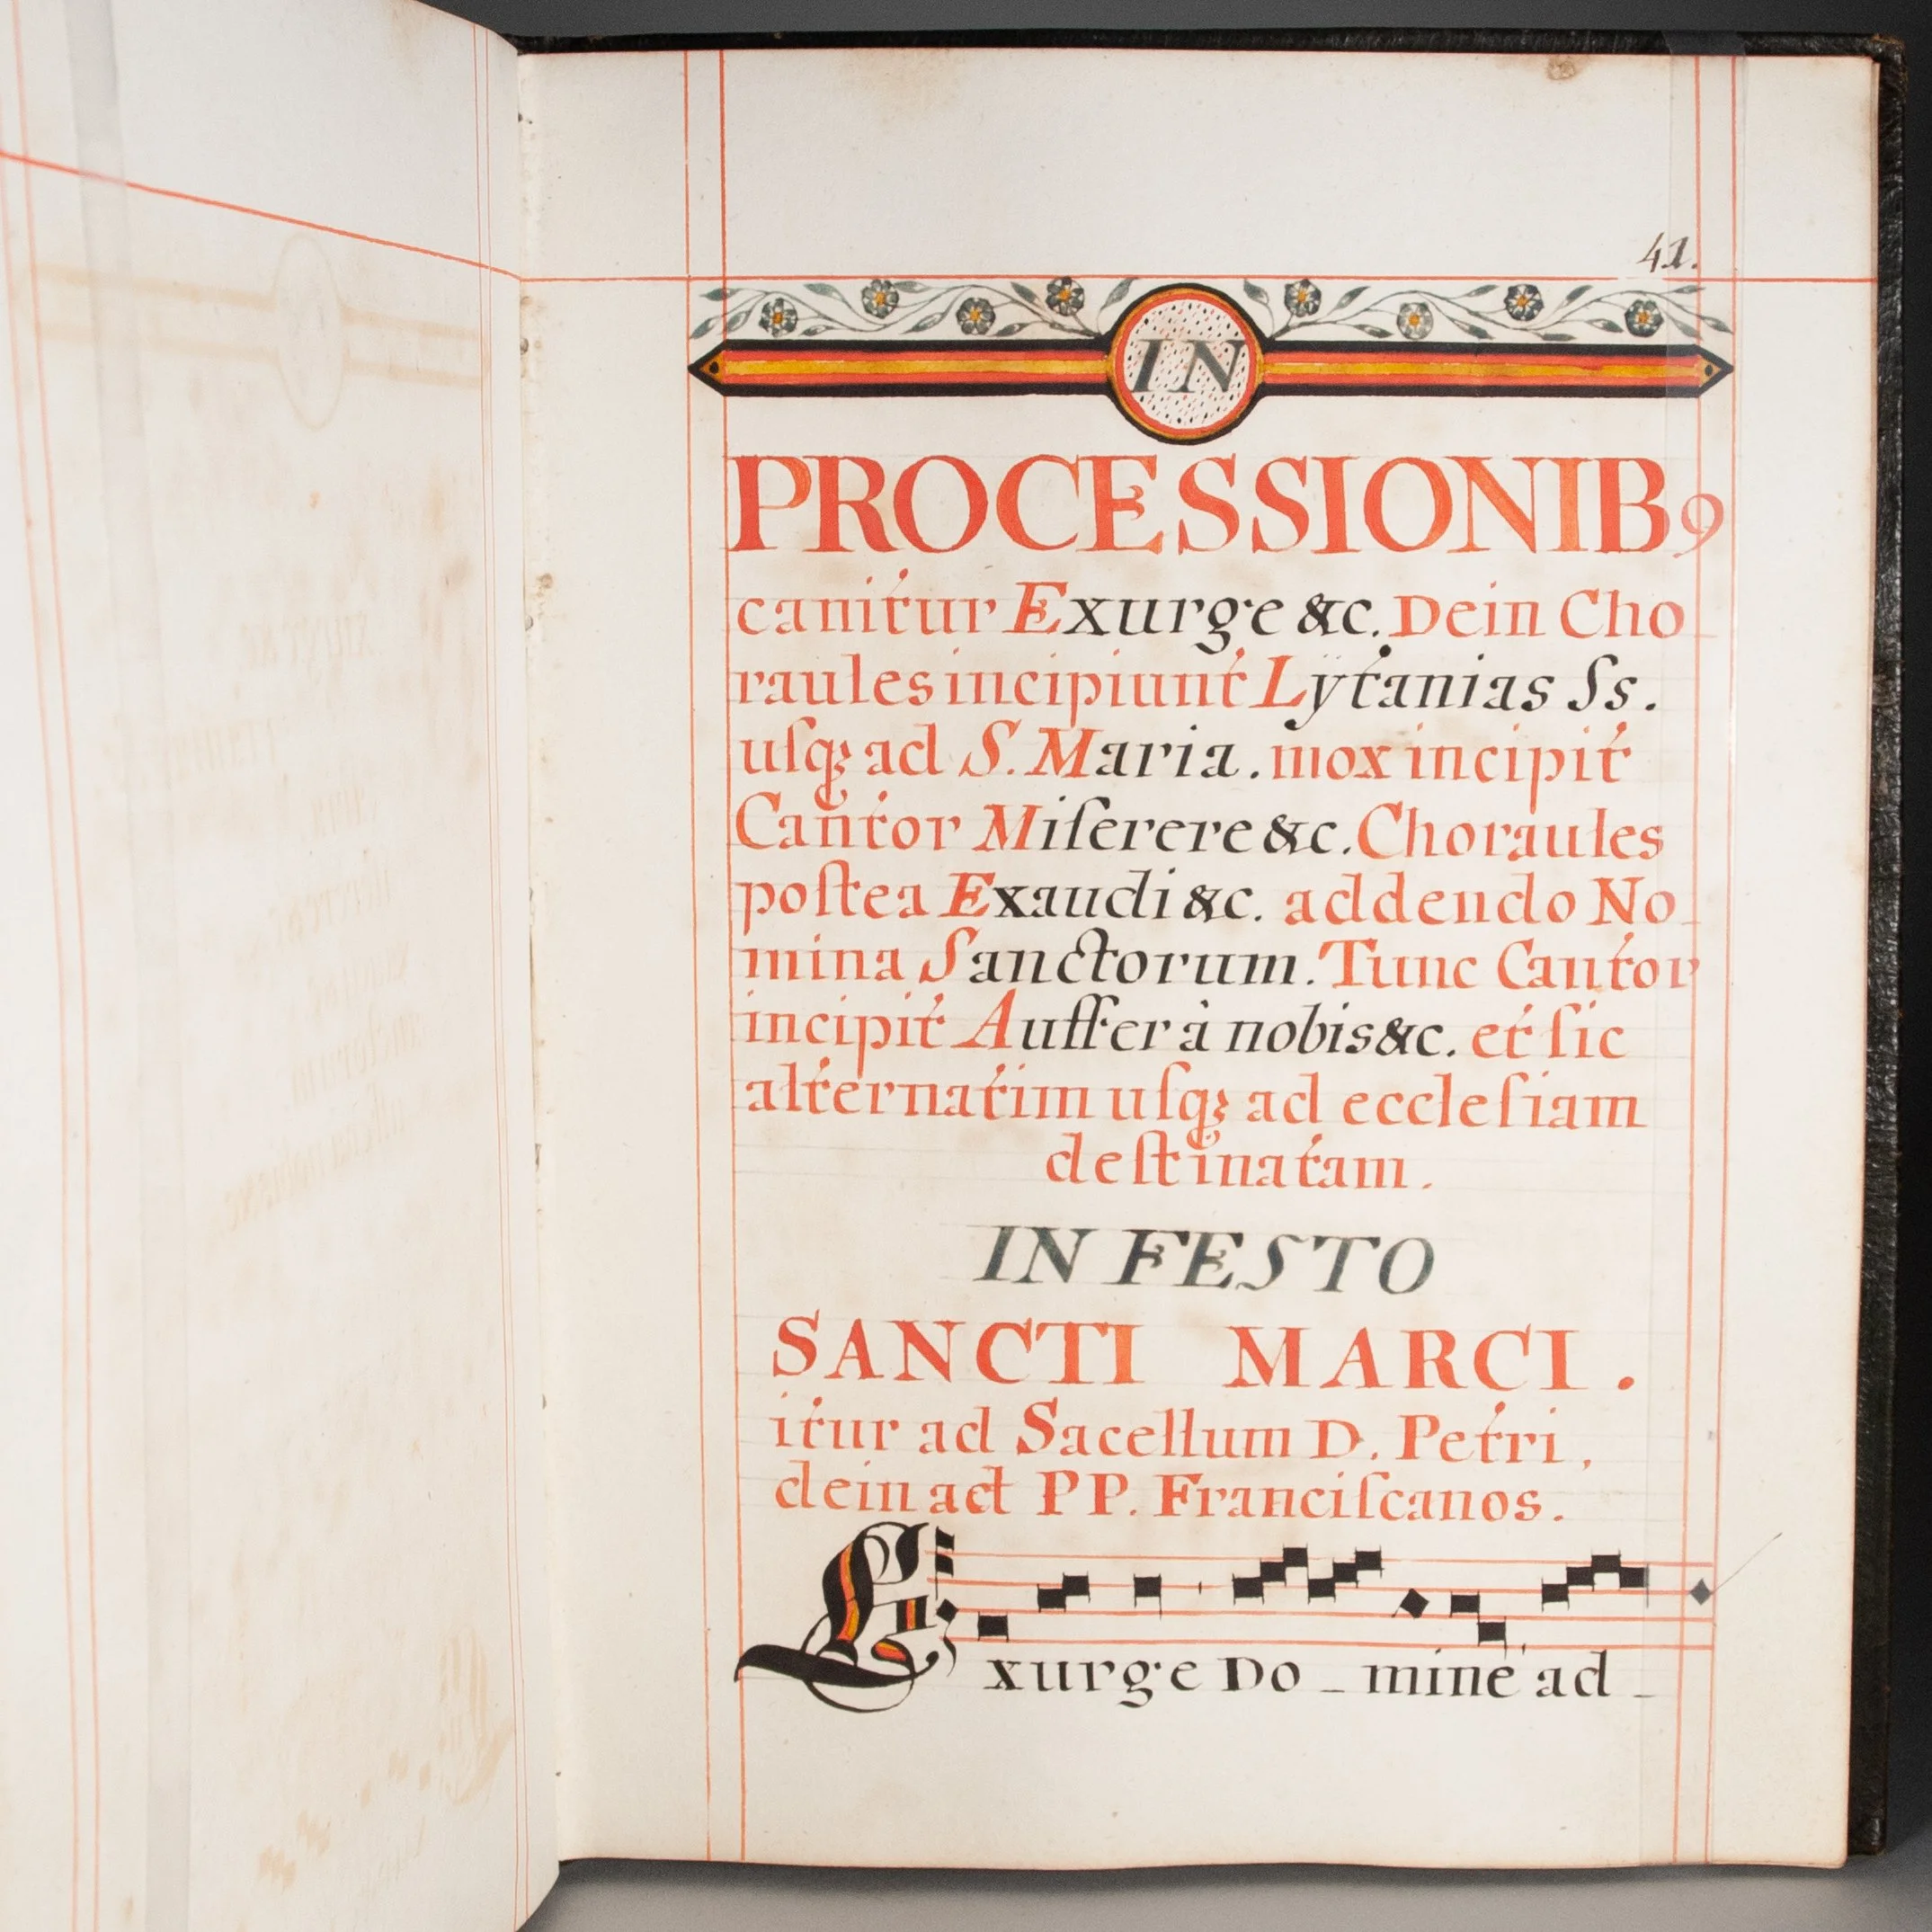 41.
IN
PROCESSIONIBꝰ
canitur Exurge &c. Dein Cho
raules incipiunt Lÿtanias Ss.
uſqꝫ ad S. Maria. mox incipit
Cantor Miſerere &c. Choraules
poſtea Exaudi &c. addendo No_
mina Sanctorum. Tunc Cantor
incipit Auffer à nobis &c. et ſic
alternatim uſqꝫ ad eccleſiam
deſtinatam.
IN FESTO
SANCTI MARCI.
itur ad Sacellum D. Petri,
dein ad PP. Franciſcanos.
Exurge Do _ mine ad _